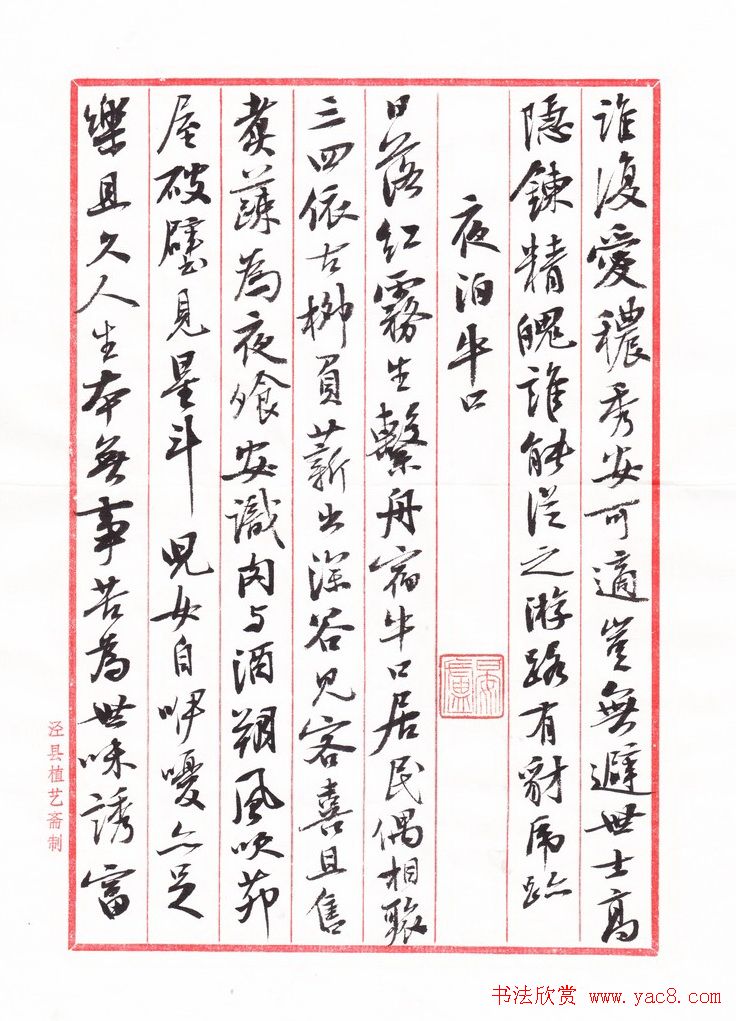 誰復愛穠秀安可適豈無避世士高
隱鍊精魄誰能從之游路有豺虎跡
夜泊牛口
日落紅霧生繫舟宿牛口居民偶相聚
三四依古柳負薪出深谷見客喜且售
煮蔬為夜飧安識肉与酒朔風吹茆
屋破壁見星斗兒女自咿嚘亦足
樂且久人生本無事苦為世味誘富
泾县植艺斋制
书法欣赏 www.yac8.com